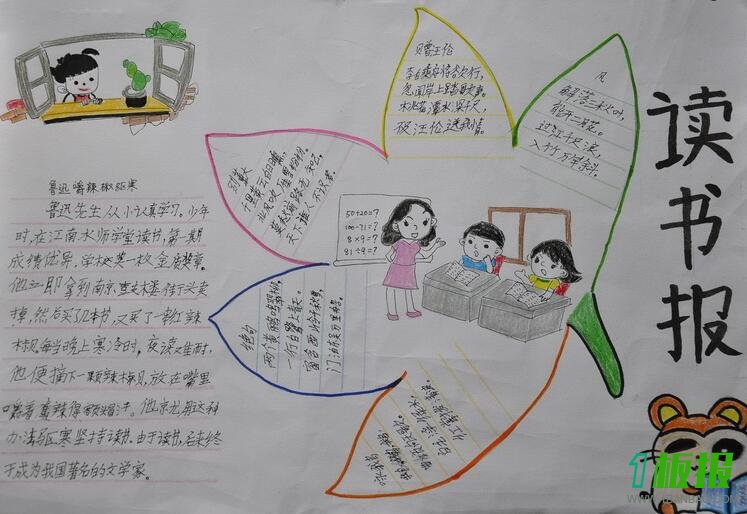 读书报
鲁迅嚼辣椒驱寒
鲁迅先生从小认真学习。少年
时,在江南水师学堂读书,第一期
成绩优异,学校奖一枚金质奖章。
他立即拿到南京
掉,然后买了几本书,又买了一串红辣
椒。每当晚上寒冷时,夜读
他便摘下一颗辣椒,放在嘴里
嚼着
办法驱寒坚持读书。由于读书,后来终
于成为我国著名的文学家。
别董大
千里黄云白日曛,
北风吹雁雪纷纷。
莫愁前路无知己,
天下谁人不识君。
赠汪伦
李白乘舟将欲行,
忽闻岸上踏歌声。
桃花潭水深千尺,
汪伦送我情。
风
解落三秋叶,
能开二月花。
过江千尺浪,
入竹万竿斜。
绝句
两个黄鹂鸣翠柳,
一行白鹭上青天。
窗含西岭千秋雪,
门泊东吴万里船。
50+20=?
100-71=?
8×9=?
81÷9=?
板报